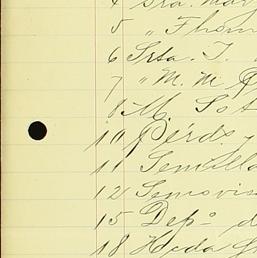 4 Sra. Mar
5 " Thom
6 Srta. T.
7 " M. M.
8 M. Sot
10 Pérds. y
11 Semilla
12 Semovis
15 Depo. d
18 Hcda